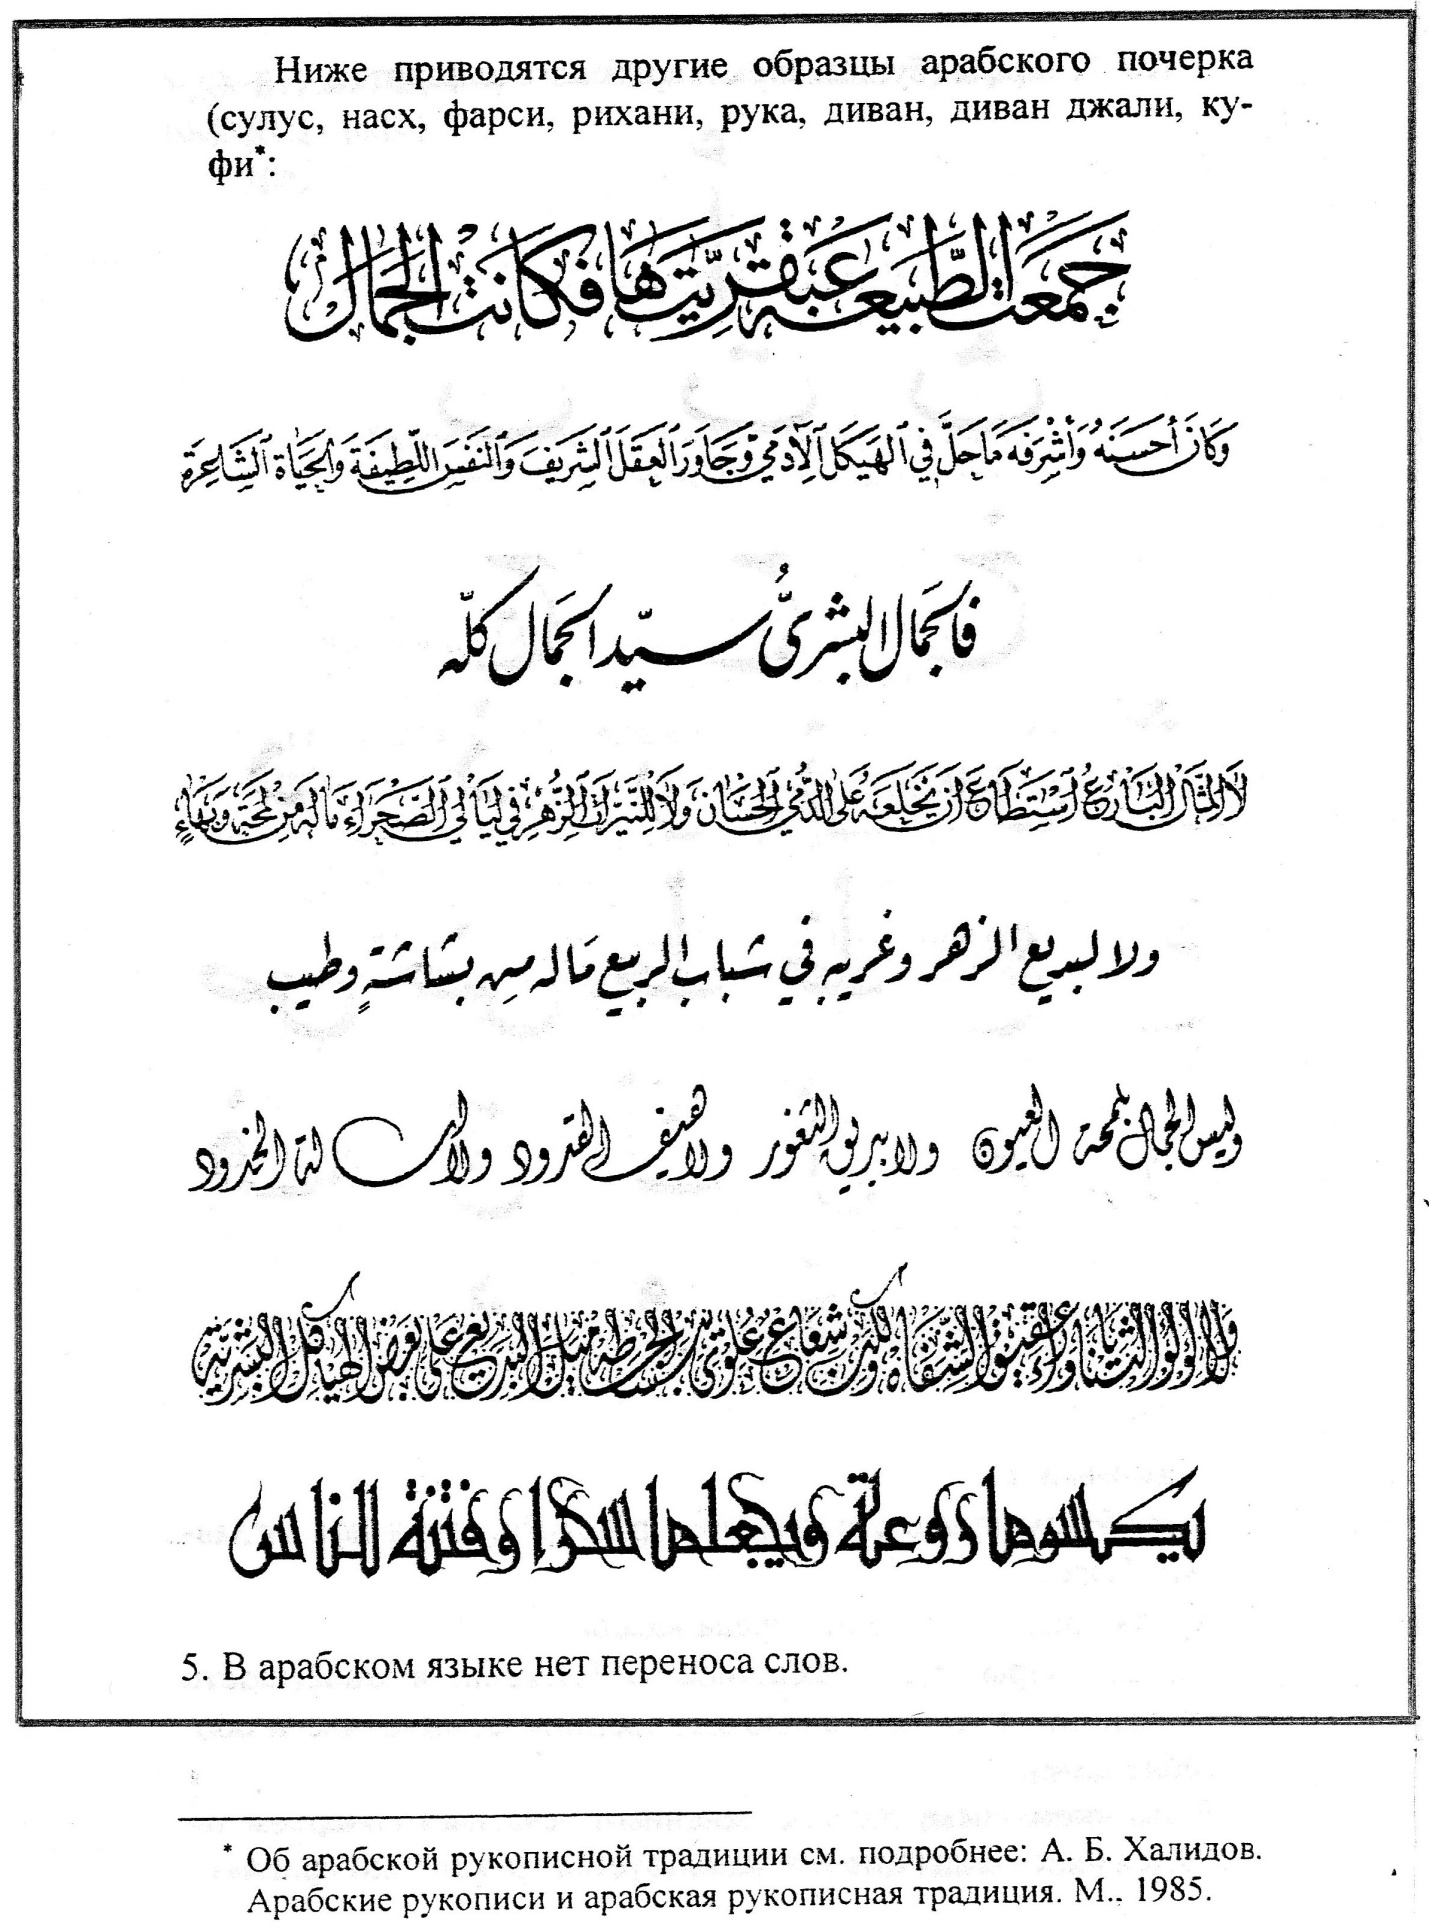 Ниже приводятся другие образцы арабского почерка
(сулус, насх, фарси, рихани, рука, диван, диван джали, ку-
фи*:
جمعت الطبيعة عبقريّتها فكانت الجمال
وَكَانَ أحسَنهُ وَأشْرفه مَا حَلَّ في الهَيكل الآدَميّ وَجَاوَرَ العَقلَ الشريفَ وَالنفسَ اللّطِيفَة وَالحَيَاة الشَّاعِرَة
فالجمال البشريُّ سيّد الجمال كلّه
لَا المثّال البَارعُ استطَاعَ أن يَخلعَهُ عَلى الدُّمى الحسَان وَلَا للنّيّرات الزُّهر في ليَالي الصّحرَاء مَا لَهُ من لمحَة وَبَهَاءٍ
ولا لبديع الزهر وغريبه في شباب الربيع مَا له مِن بشاشةٍ وطيب
وليس الجمال بلمحة العيون ولا ببريق الثغور ولا هيف القدود ولا أسالة الخدود
وَلَا لؤلؤ الثنايا وراء عقيق الشفاه ولكن شعاع عُلويّ يبسطه الجميل البديع على بعض الهياكل البشرية
يكسوها روعة ويجعلها سحرا وفتنة للناس
5. В арабском языке нет переноса слов.
* Об арабской рукописной традиции см. подробнее: А. Б. Халидов.
Арабские рукописи и арабская рукописная традиция. М., 1985.